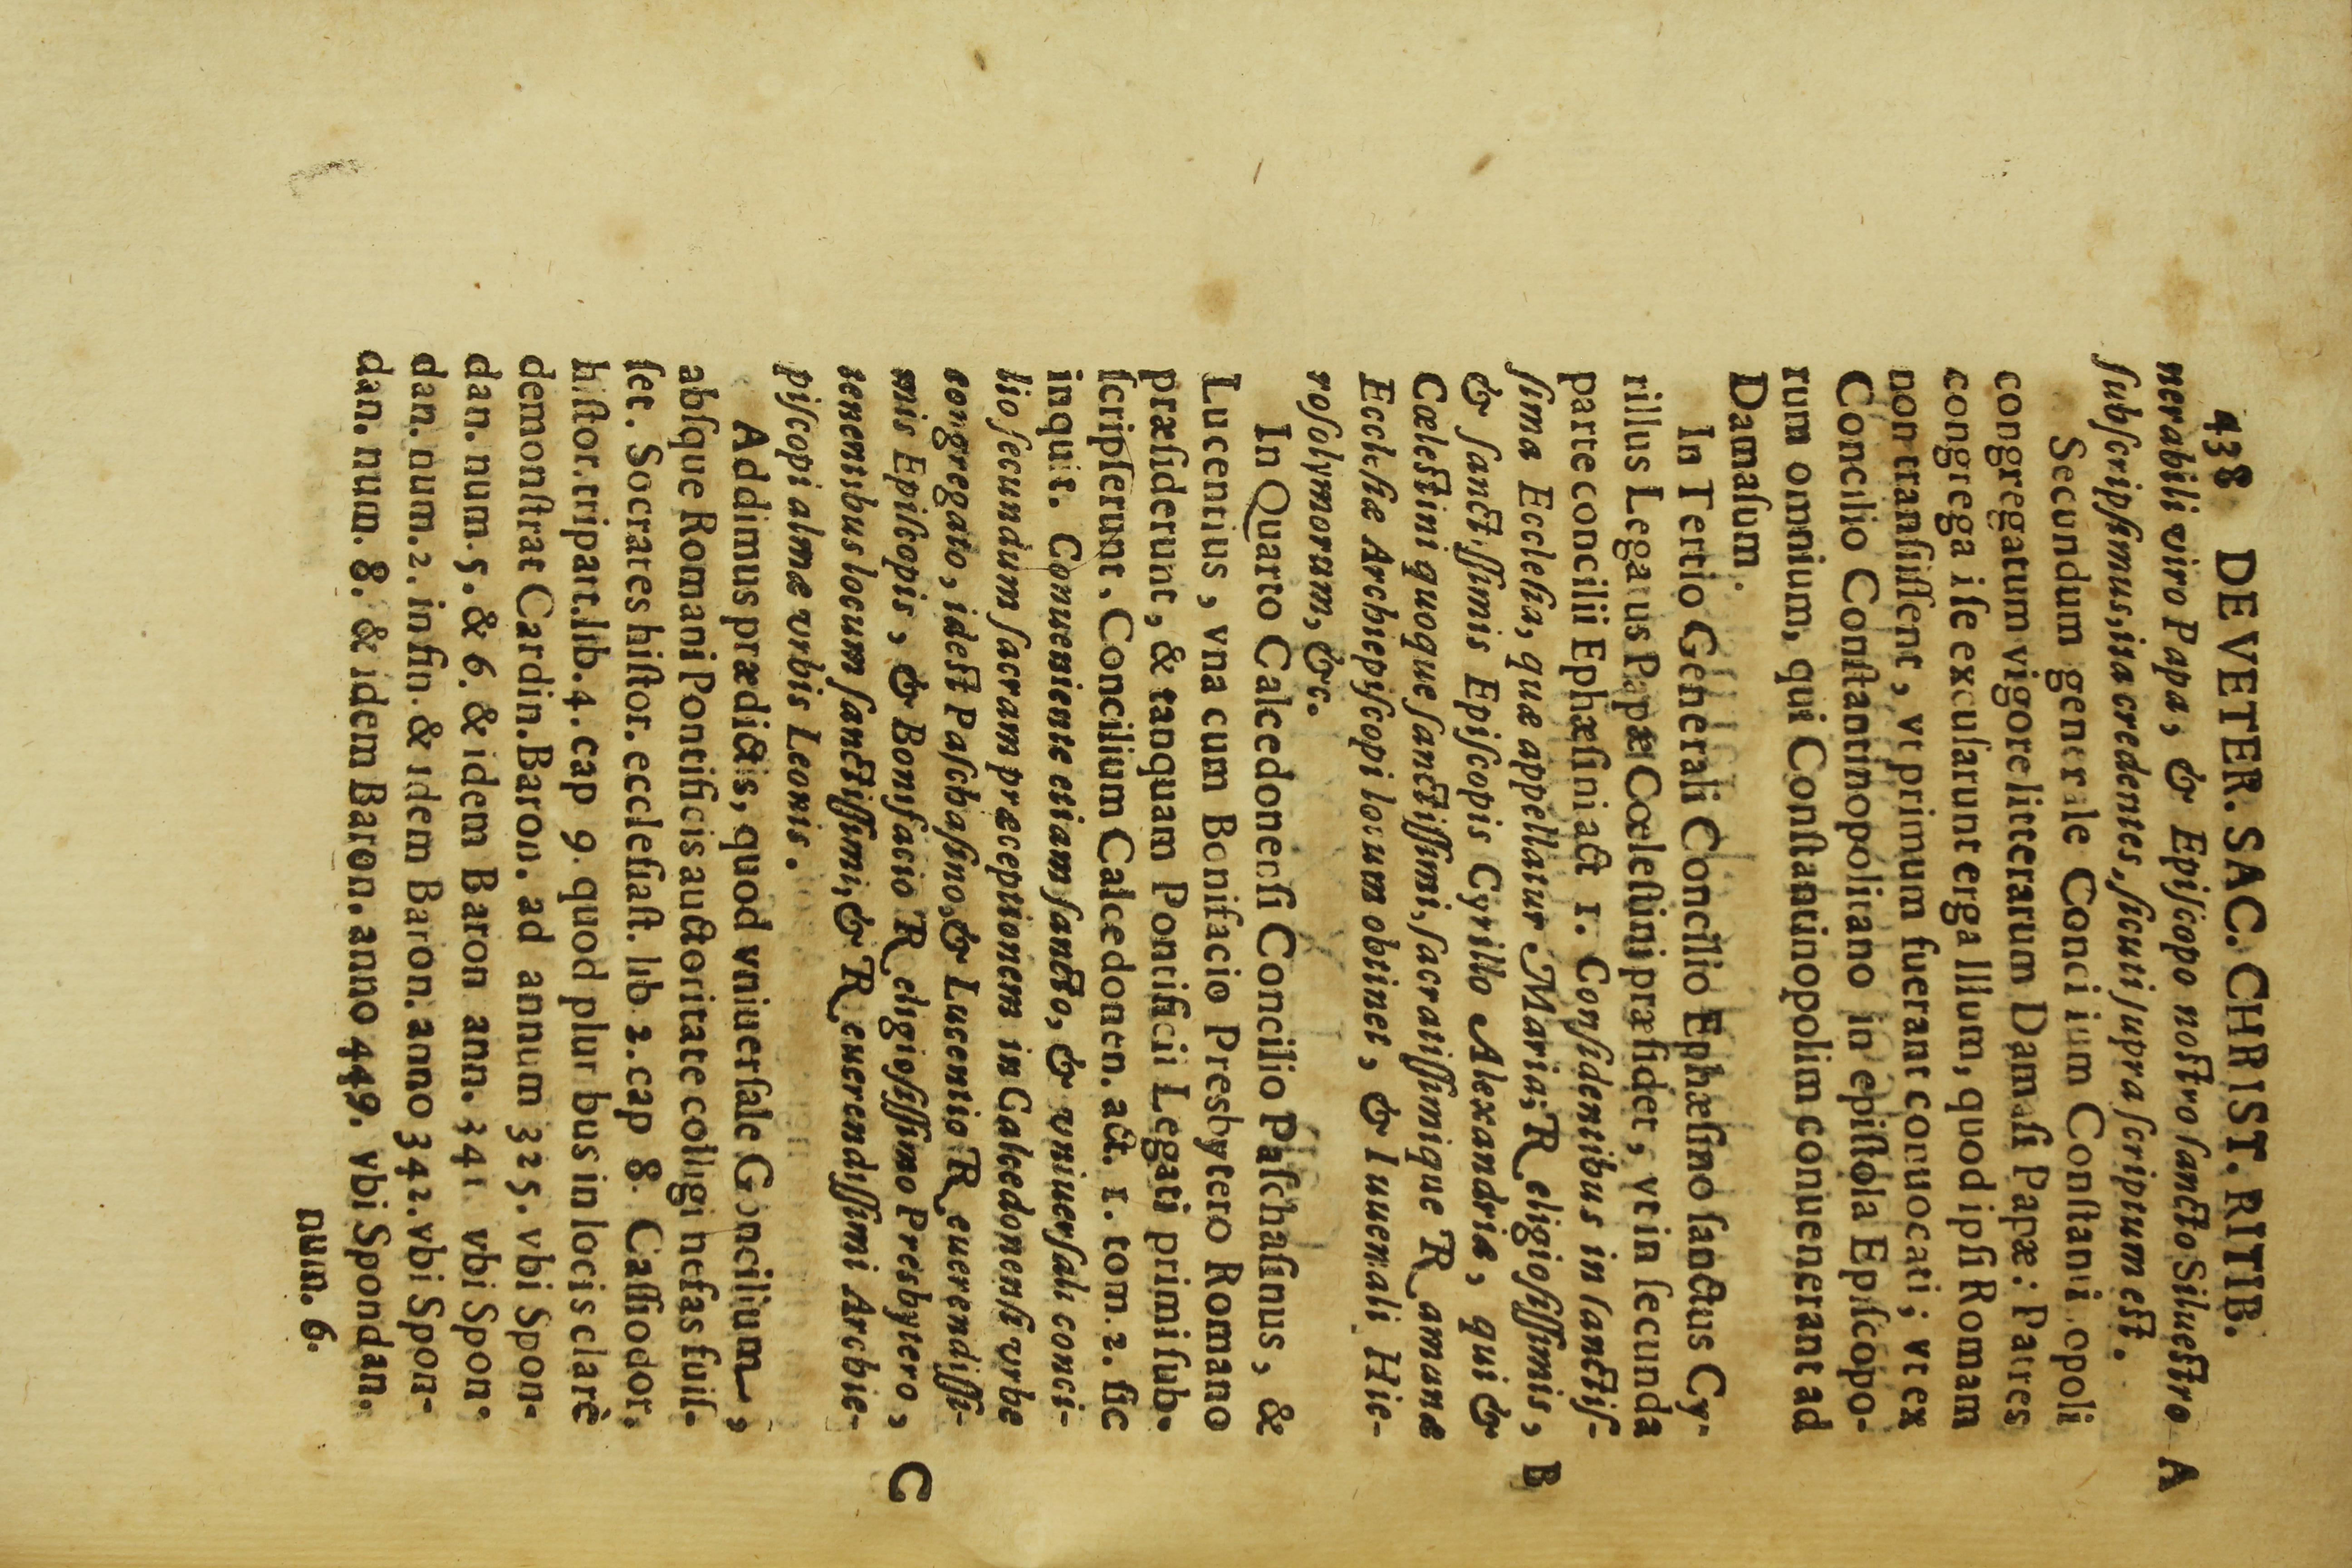 438 DE VETER. SAC. CHRIST. RITIB.
nerabili viro Papa, & Epiſcopo noſtro ſancto Silueſtro A
ſubſcripſimus, ita credentes, ſicuti ſupra ſcriptum eſt.
Secundum generale Concilium Conſtantinopoli
congregatum vigore litterarum Damaſi Papæ: Patres
congrega i ſe excuſarunt erga Illum, quod ipſi Romam
non tranſiiſſent, vt primum fuerant conuocati; vt ex
Concilio Conſtantinopolitano in epiſtola Epiſcopo-
rum omnium, qui Conſtantinopolim conuenerant ad
Damaſum.
In Tertio Generali Concilio Ephæſino ſanctus Cy-
rillus Lega us Papæ Cœleſtini præſidet, vt in ſecunda
parte concilii Ephæſini act 1. Conſidentibus in ſanctiſ-
ſima Eccleſia, quæ appellatur Maria; Religioſiſſimis, B
& ſanct ſſimis Epiſcopis Cyrillo Alexandriæ, qui &
Cæleſtini quoque ſanctiſſimi, ſacratiſſimique Romanæ
Eccleſiæ Archiepiſcopi locum obtinet, & Iuuenali Hie-
roſolymorum, &c.
In Quarto Calcedonenſi Concilio Paſchaſinus, &
Lucentius, vna cum Bonifacio Presbytero Romano
præſiderunt, & tanquam Pontificii Legati primi ſub-
ſcripſerunt, Concilium Calcedonen. act. 1. tom. 2. ſic
inquit. Conueniente etiam ſancto, & vniuerſali conci-
lio ſecundum ſacram præceptionem in Calcedonenſi vrbe
congregato, ideſt Paſchaſino, & Lucentio Reuerendiſſi-
mis Epiſcopis, & Bonifacio Religioſiſſimo Presbytero, C
tenentibus locum ſanctiſſimi, & Reuerendiſſimi Archie-
piſcopi almæ vrbis Leonis.
Addimus prædictis, quod vniuerſale Concilium,
abſque Romani Pontificis auctoritate colligi nefas fuiſ-
ſet. Socrates hiſtor. eccleſiaſt. lib 2. cap 8. Caſſiodor,
hiſtor. tripart. lib. 4. cap 9. quod plur bus in locis clarè
demonſtrat Cardin. Baron. ad annum 325. vbi Spon-
dan. num. 5. & 6. & idem Baron ann. 341 vbi Spon-
dan. num. 2. in fin. & idem Baron. anno 342. vbi Spon-
dan. num. 8. & idem Baron. anno 449. vbi Spondan.
num. 6.